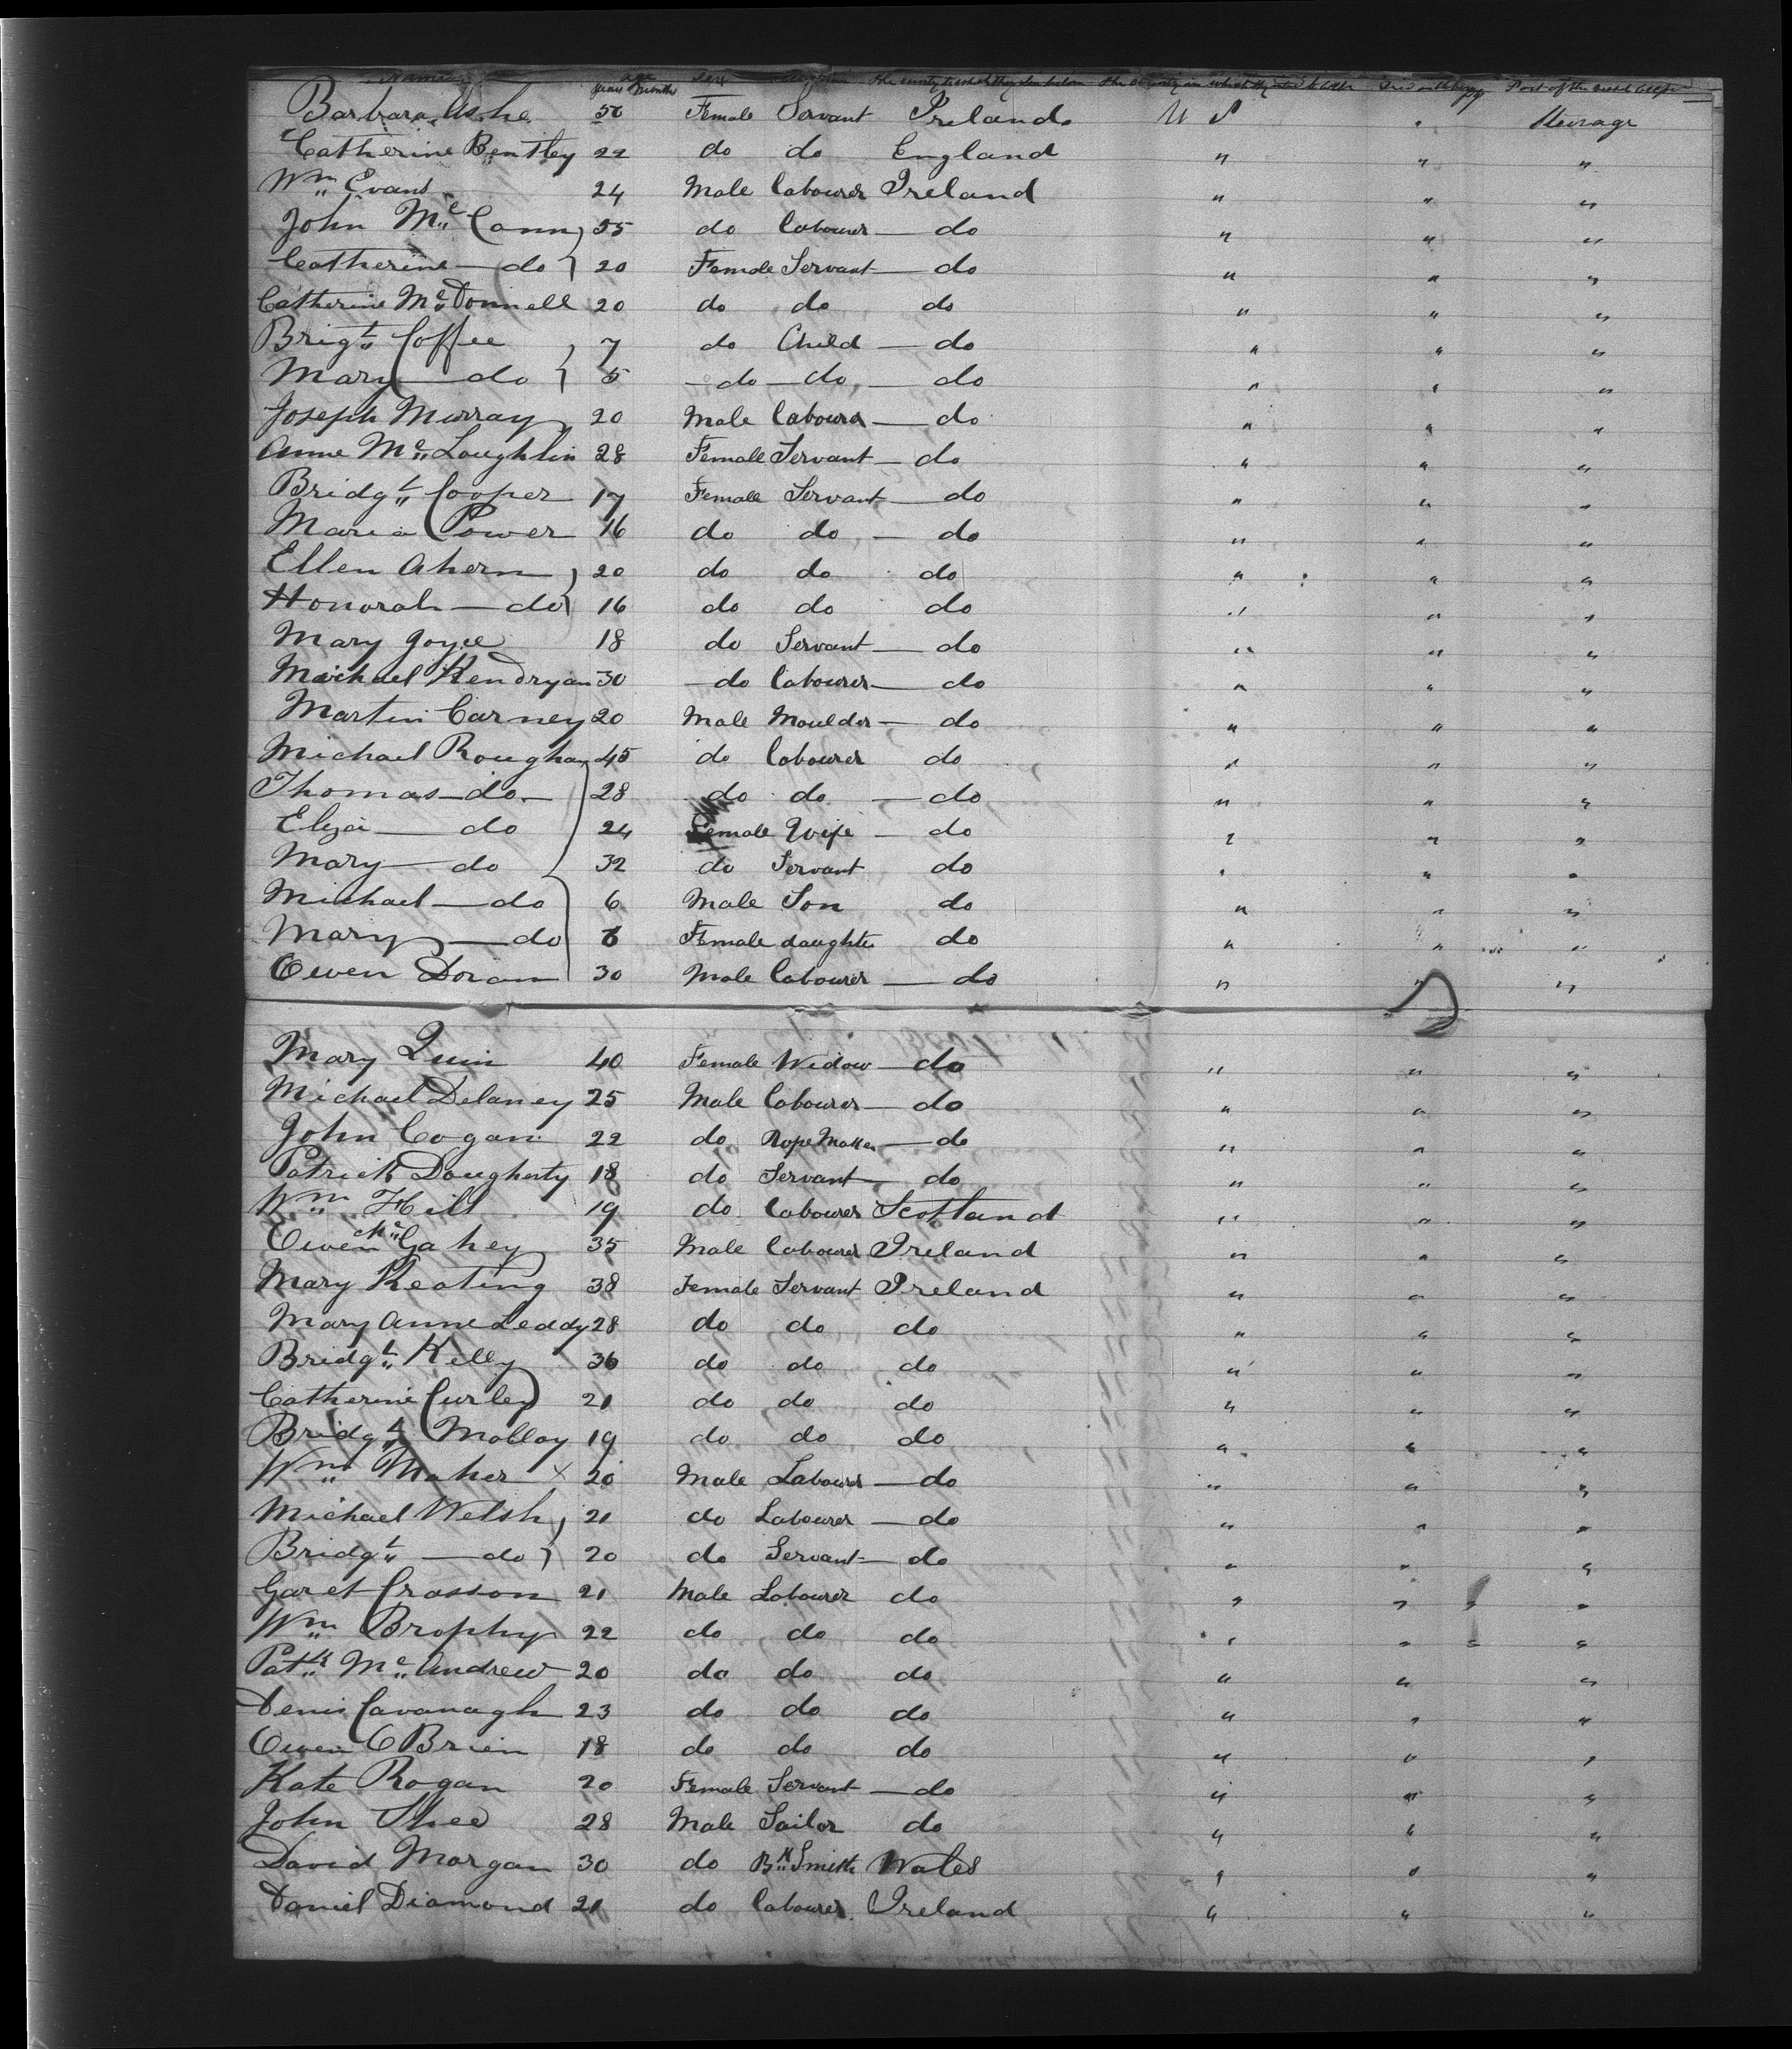 Names age Sex Occupation The country to which they belong The country in which they intend to settle Died on the voyage Part of the vessel occupied
years Months
Barbara Ashe 50 Female Servant Ireland U S " Steerage
Catherine Bentley 22 do do England " " "
Wm Evans 24 Male labourer Ireland " " "
John Mc Cann 55 do labourer — do " " "
Catherine — do 20 Female Servant — do " " "
Catherine McDonnell 20 do do do " " "
Brigt Coffee 7 do Child — do " " "
Mary — do 5 — do — do — do " " "
Joseph Murray 20 Male labourer — do " " "
Anne McLoughlin 28 Female Servant — do " " "
Bridgt Cooper 17 Female Servant — do " " "
Maria Power 16 do do — do " " "
Ellen Ahern 20 do do do " " "
Honorah — do 16 do do do " " "
Mary Joyce 18 do Servant — do " " "
Michael Hendryan 30 — do labourer — do " " "
Martin Carney 20 Male Moulder — do " " "
Michael Roughan 45 do labourer do " " "
Thomas — do — 28 do do — do " " "
Eliza — do 24 Female Wife — do " " "
Mary — do 32 do Servant do " " "
Michael — do 6 Male Son do " " "
Mary — do 6 Female daughter do " " "
Owen Doran 30 Male labourer — do " " "
Mary Quin 40 Female Widow — do " " "
Michael Delaney 25 Male labourer — do " " "
John Cogan 22 do Rope Maker — do " " "
Patrick Dougherty 18 do Servant — do " " "
Wm Hill 19 do labourer Scotland " " "
Owen McGahey 35 Male labourer Ireland " " "
Mary Keating 38 Female Servant Ireland " " "
Mary Anne Leddy 28 do do do " " "
Bridgt Kelly 36 do do do " " "
Catherine Curley 21 do do do " " "
Bridgt Molloy 19 do do do " " "
Wm Maher x 20 Male Labourer — do " " "
Michael Welsh 21 do Labourer — do " " "
Bridgt — do 20 do Servant — do " " "
Garet Crosson 21 Male Labourer do " " "
Wm Brophy 22 do do do " " "
Patk Mc Andrew 20 do do do " " "
Denis Cavanagh 23 do do do " " "
Owen O Brien 18 do do do " " "
Kate Rogan 20 Female Servant — do " " "
John Shee 28 Male Sailor do " " "
David Morgan 30 do Bk Smith Wales " " "
Daniel Diamond 21 do labourer Ireland " " "